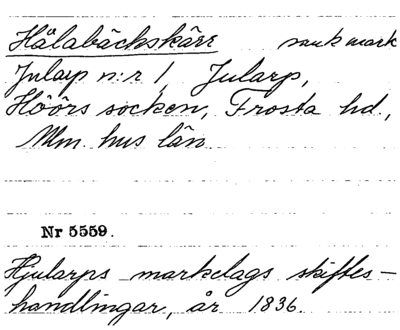 Hålabäckskärr sank mark
Jularp n:r 1, Jularp,
Höörs socken, Frosta hd,
Mm. hus län
Nr 5559.
Hjularps markelags skiftes-
handlingar, år 1836.